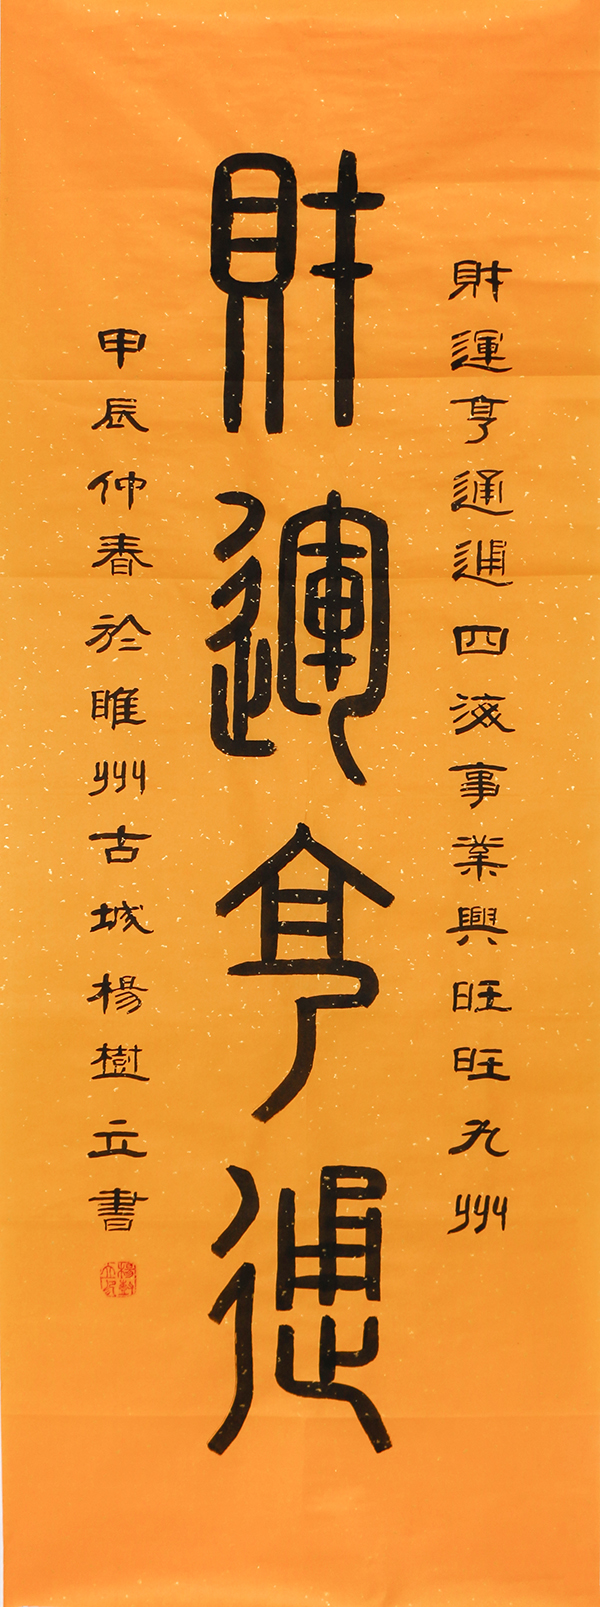 財運亨通通四海事業興旺旺九州
財運亨通
甲辰仲春於睢州古城楊樹立書
楊樹立印